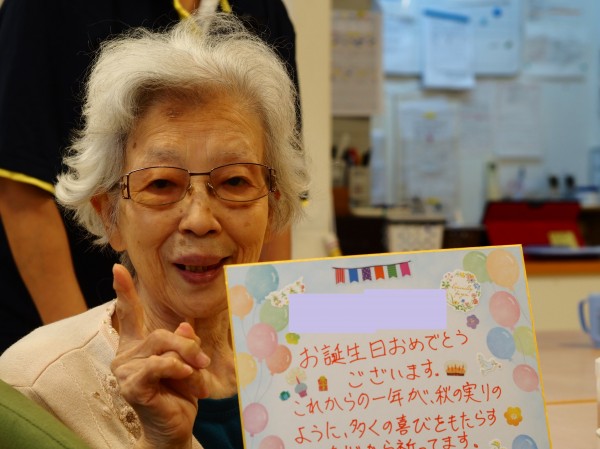 お誕生日おめでとう
ございます。
これからの一年が、秋の実りの
ように、多くの喜びをもたらす
から祈ってます。